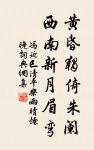 黄昏独倚朱阑
西南新月眉弯
冯延巳清平乐雨晴烟
晚词典网集